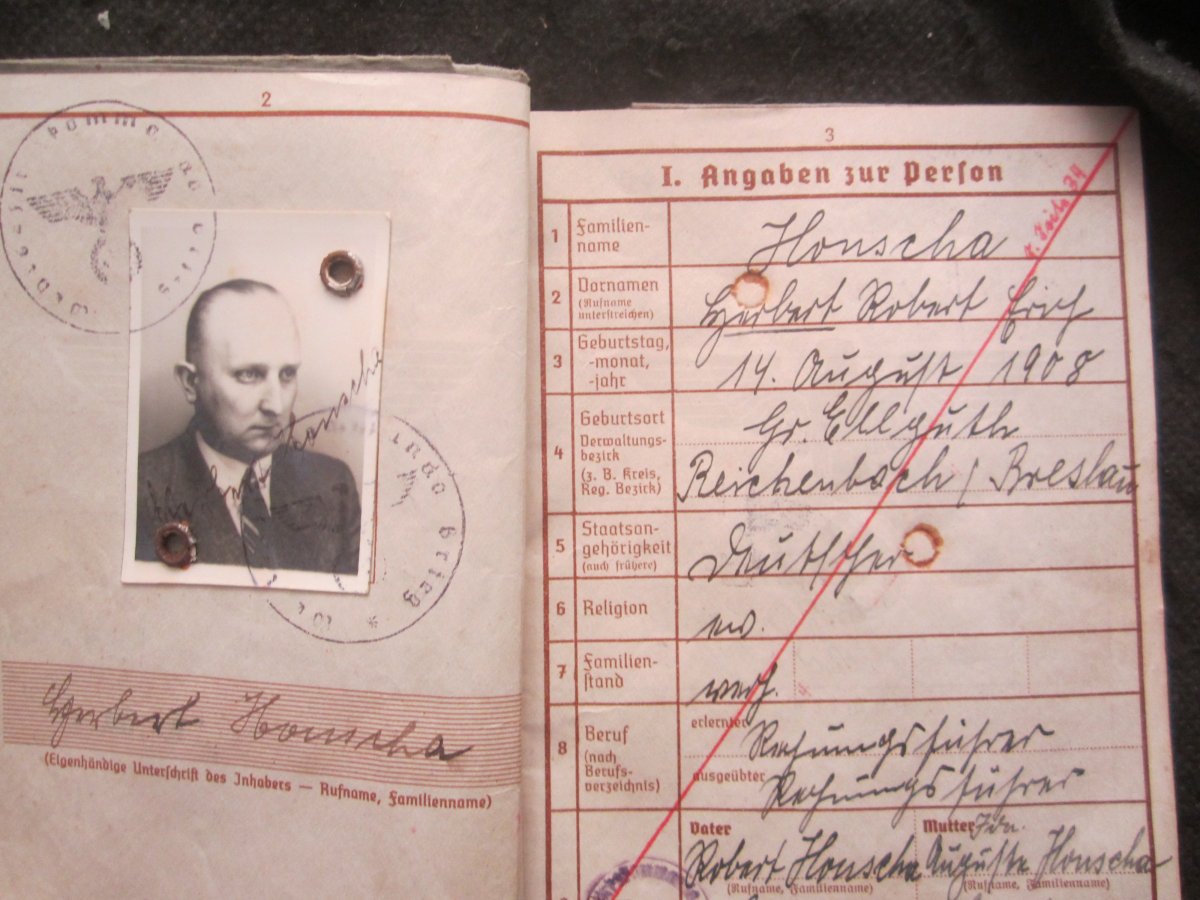 2
Herbert Honscha
(Eigenhändige Unterschrift des Inhabers — Rufname, Familienname)
3
I. Angaben zur Person
34
1 Familien-
name
Honscha
2 Vornamen
(Rufname
unterstreichen)
Herbert Robert Erich
3 Geburtstag,
-monat,
-jahr
14. August 1908
4 Geburtsort
Verwaltungs-
bezirk
(z. B. Kreis,
Reg. Bezirk)
Gr. Ellguth
Reichenbach / Breslau
5 Staatsan-
gehörigkeit
(auch frühere)
Deutscher
6 Religion
ev.
7 Familien-
stand
verh.
8 Beruf
(nach
Berufs-
verzeichnis)
erlernter Rechnungsführer
ausgeübter Rechnungsführer
Vater
Robert Honscha
(Rufname, Familienname)
Mutter Ida
Auguste Honscha
(Rufname, Familienname)